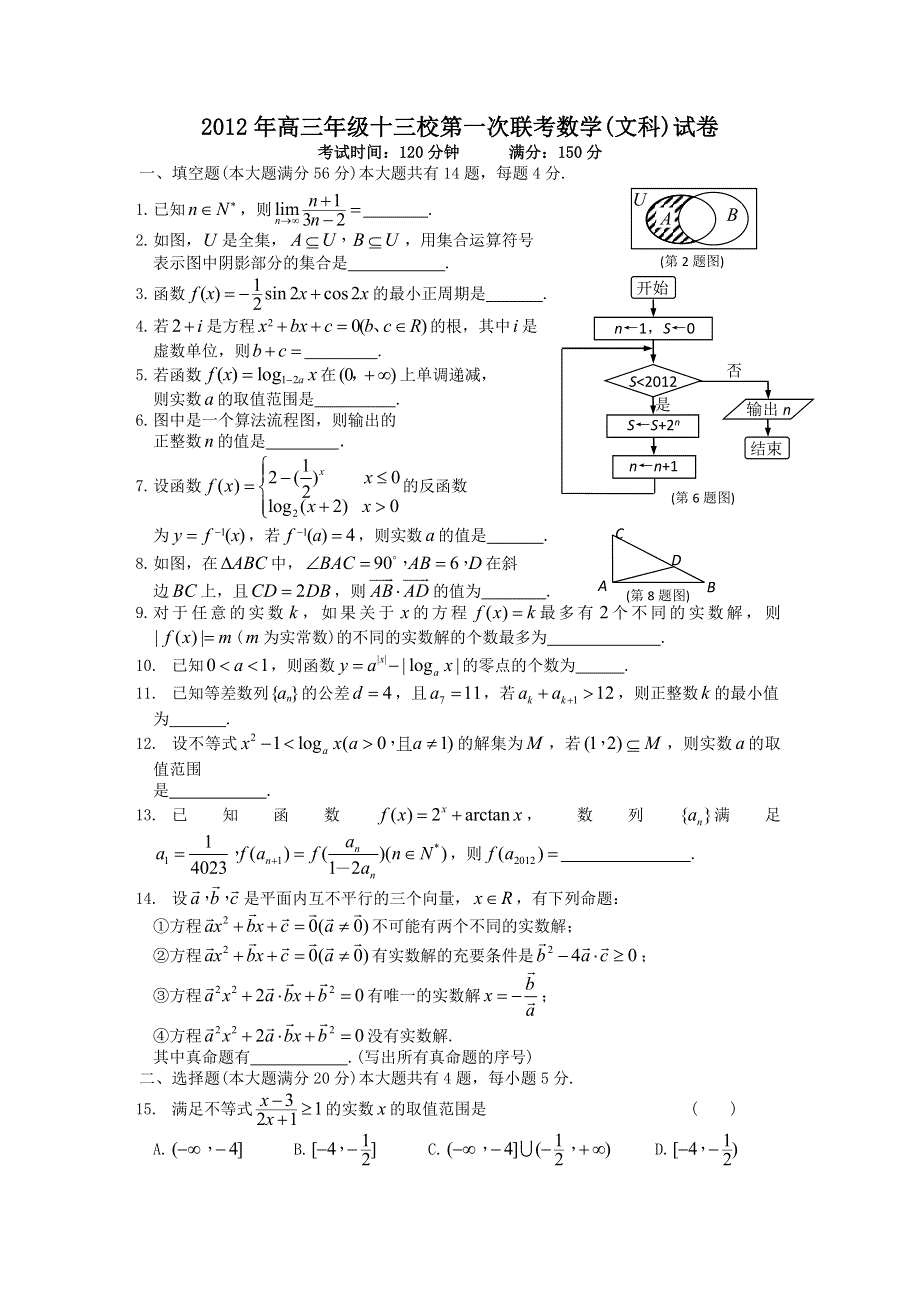 2012年高三年级十三校第一次联考数学(文科)试卷
考试时间：120分钟 满分：150分
一、填空题(本大题满分56分)本大题共有14题，每题4分.
1. 已知 $n\in N^*$，则 $\lim\limits_{n\to\infty}\frac{n+1}{3n-2}=$ ________.
2. 如图，$U$ 是全集，$A\subseteq U，B\subseteq U$，用集合运算符号
表示图中阴影部分的集合是____________.
U
A
B
(第2题图)
3. 函数 $f(x)=-\frac{1}{2}\sin 2x+\cos 2x$ 的最小正周期是_______.
4. 若 $2+i$ 是方程 $x^2+bx+c=0(b、c\in R)$ 的根，其中 $i$ 是
虚数单位，则 $b+c=$ _________.
5. 若函数 $f(x)=\log_{1-2a}x$ 在 $(0，+\infty)$ 上单调递减，
则实数 $a$ 的取值范围是__________.
6. 图中是一个算法流程图，则输出的
正整数 $n$ 的值是_________.
开始
n←1，S←0
S<2012
否
是
输出 n
S←S+2ⁿ
结束
n←n+1
(第6题图)
7. 设函数 $f(x)=\begin{cases}2-(\frac{1}{2})^x & x\le 0\\ \log_2(x+2) & x>0\end{cases}$ 的反函数
为 $y=f^{-1}(x)$，若 $f^{-1}(a)=4$，则实数 $a$ 的值是_______.
8. 如图，在 $\Delta ABC$ 中，$\angle BAC=90^\circ，AB=6，D$ 在斜
边 $BC$ 上，且 $CD=2DB$，则 $\overrightarrow{AB}\cdot\overrightarrow{AD}$ 的值为________.
C
D
A
B
(第8题图)
9. 对于任意的实数 $k$，如果关于 $x$ 的方程 $f(x)=k$ 最多有 2 个不同的实数解，则
$|f(x)|=m$ ($m$ 为实常数)的不同的实数解的个数最多为______________.
10. 已知 $0<a<1$，则函数 $y=a^{|x|}-|\log_a x|$ 的零点的个数为______.
11. 已知等差数列 $\{a_n\}$ 的公差 $d=4$，且 $a_7=11$，若 $a_k+a_{k+1}>12$，则正整数 $k$ 的最小值
为_______.
12. 设不等式 $x^2-1<\log_a x(a>0，且 a\ne 1)$ 的解集为 $M$，若 $(1，2)\subseteq M$，则实数 $a$ 的取
值范围
是____________.
13. 已知函数 $f(x)=2^x+\arctan x$，数列 $\{a_n\}$ 满足
$a_1=\frac{1}{4023}，f(a_{n+1})=f(\frac{a_n}{1-2a_n})(n\in N^*)$，则 $f(a_{2012})=$ ________________.
14. 设 $\vec{a}，\vec{b}，\vec{c}$ 是平面内互不平行的三个向量，$x\in R$，有下列命题：
①方程 $\vec{a}x^2+\vec{b}x+\vec{c}=\vec{0}(\vec{a}\ne\vec{0})$ 不可能有两个不同的实数解；
②方程 $\vec{a}x^2+\vec{b}x+\vec{c}=\vec{0}(\vec{a}\ne\vec{0})$ 有实数解的充要条件是 $\vec{b}^2-4\vec{a}\cdot\vec{c}\ge 0$；
③方程 $\vec{a}^2x^2+2\vec{a}\cdot\vec{b}x+\vec{b}^2=0$ 有唯一的实数解 $x=-\frac{\vec{b}}{\vec{a}}$；
④方程 $\vec{a}^2x^2+2\vec{a}\cdot\vec{b}x+\vec{b}^2=0$ 没有实数解.
其中真命题有____________.(写出所有真命题的序号)
二、选择题(本大题满分20分)本大题共有4题，每小题5分.
15. 满足不等式 $\frac{x-3}{2x+1}\ge 1$ 的实数 $x$ 的取值范围是 ( )
A. $(-\infty，-4]$ B. $[-4，-\frac{1}{2}]$ C. $(-\infty，-4]\bigcup(-\frac{1}{2}，+\infty)$ D. $[-4，-\frac{1}{2})$